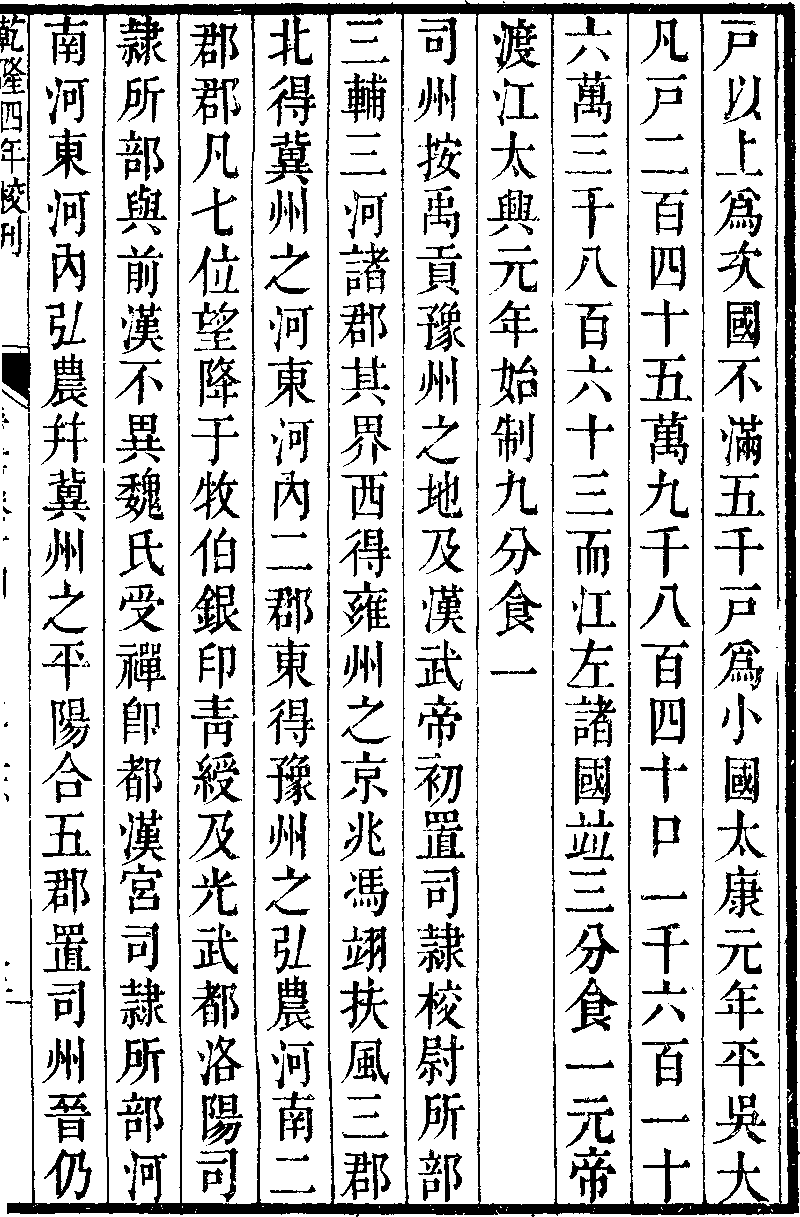 戸以上爲次國不滿五千戸爲小國太康元年平吳大
凡戸二百四十五萬九千八百四十口一千六百一十
六萬三千八百六十三而江左諸國竝三分食一元帝
渡江太興元年始制九分食一
司州按禹貢豫州之地及漢武帝初置司隷校尉所部
三輔三河諸郡其界西得雍州之京兆馮翊扶風三郡
北得冀州之河東河內二郡東得豫州之弘農河南二
郡郡凡七位望降于牧伯銀印靑綬及光武都洛陽司
隷所部與前漢不異魏氏受禪卽都漢宮司隷所部河
南河東河內弘農幷冀州之平陽合五郡置司州晉仍
乾隆四年校刊